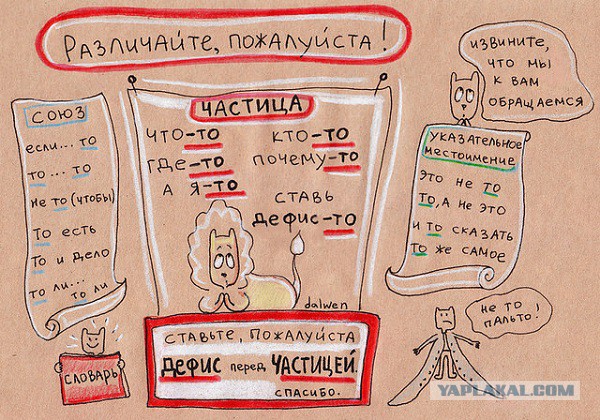 Различайте, пожалуйста!
СОЮЗ
если... то
то ... то
не то (чтобы)
то есть
то и дело
то ли... то ли
СЛОВАРЬ
ЧАСТИЦА
что-то кто-то
где-то почему-то
а я-то
ставь
дефис-то
dalwen
Ставьте, пожалуйста
дефис перед частицей.
спасибо.
извините,
что мы
к вам
обращаемся
указательное
местоимение
это не то
то, а не это
и то сказать
то же самое
не то
пальто!
YAPLAKAL.COM